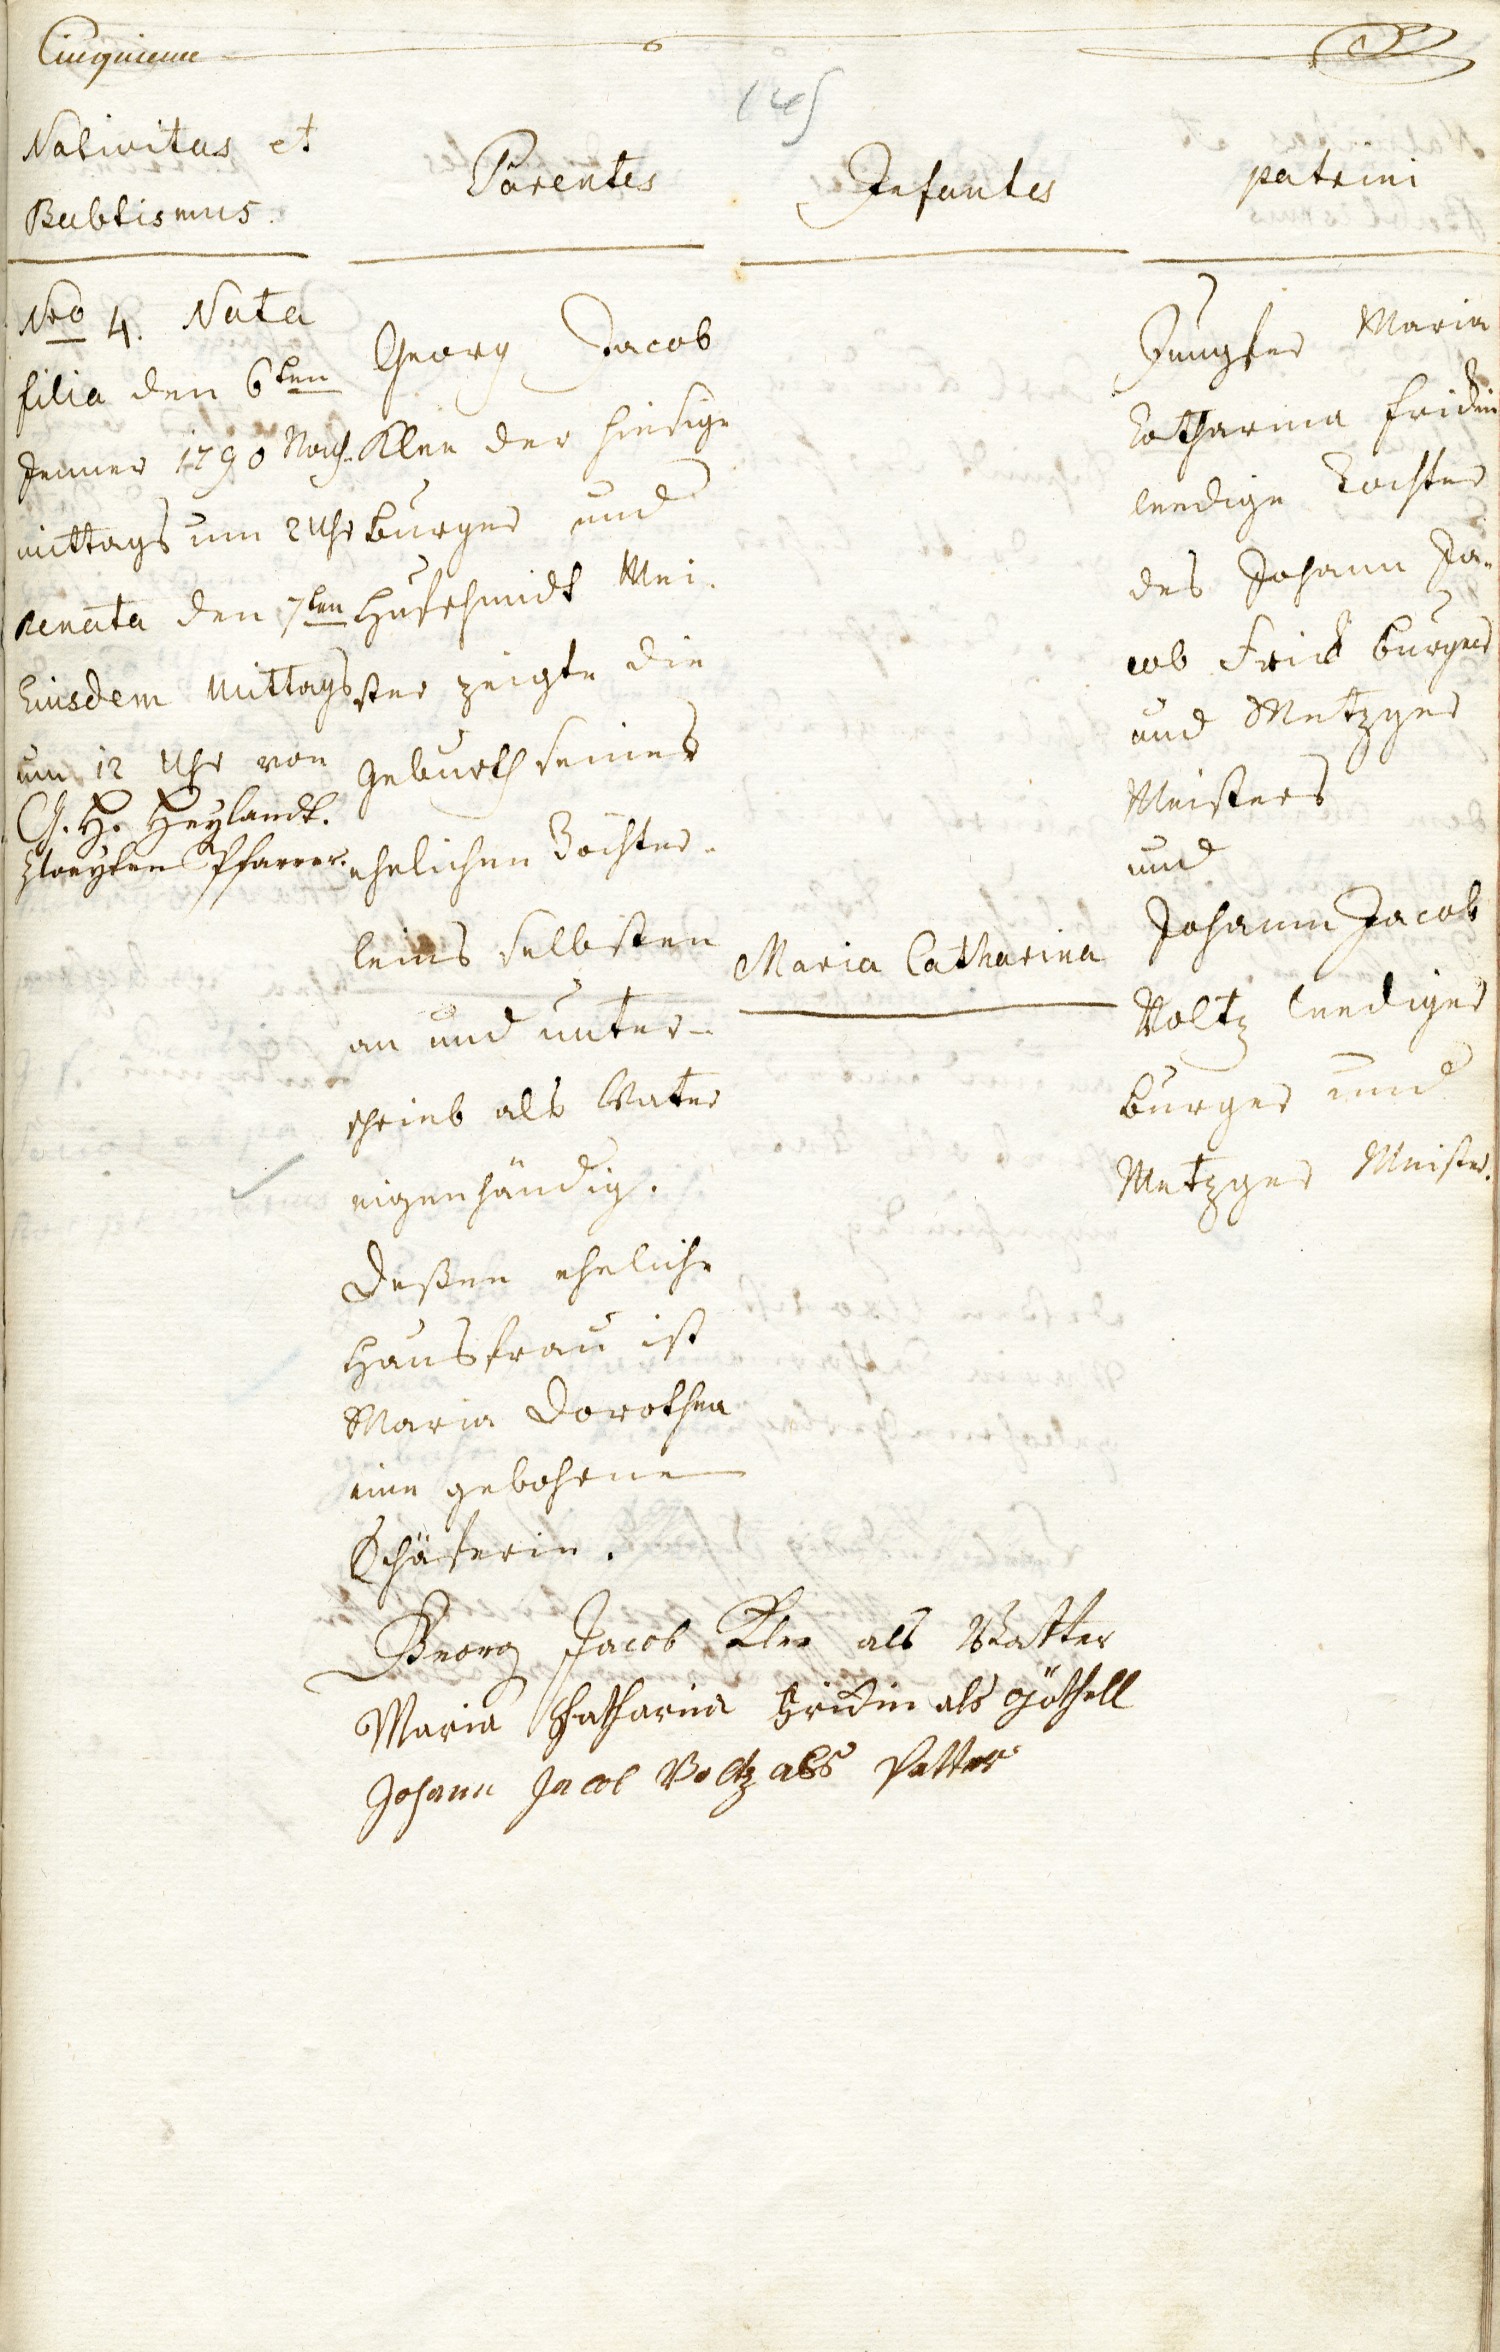 Cinquieme
145
Nativitas et
Babtismus.
Nro 4. Nata
filia den 6ten
Jenner 1790 Nach-
mittags um 2 Uhr
Renata den 7ten
Eiusdem Mittags
um 12 Uhr von
G. H. Heylandt.
Zweyten Pfarrer.
Parentes
Georg Jacob
Klee der hiesige
burger und
Hufschmidt Mei-
ster zeigte die
geburth seines
ehelichen Töchter-
leins selbsten
an und unter-
schrieb als Vater
eigenhändig.
Deßen eheliche
Hausfrau ist
Maria Dorothea
eine gebohrne
Schäferin.
Infantes
Maria Catharina
patrini
Jungfer Maria
Catharina Frickin
leedige Tochter
des Johann Ja-
cob Frick burgers
und Metzger
Meisters
und
Johann Jacob
Voltz leediger
burger und
Metzger Meister.
Georg Jacob Klee als Vatter
Maria Catharina Frickin als göthell
Johann Jacob Voltz als Petter